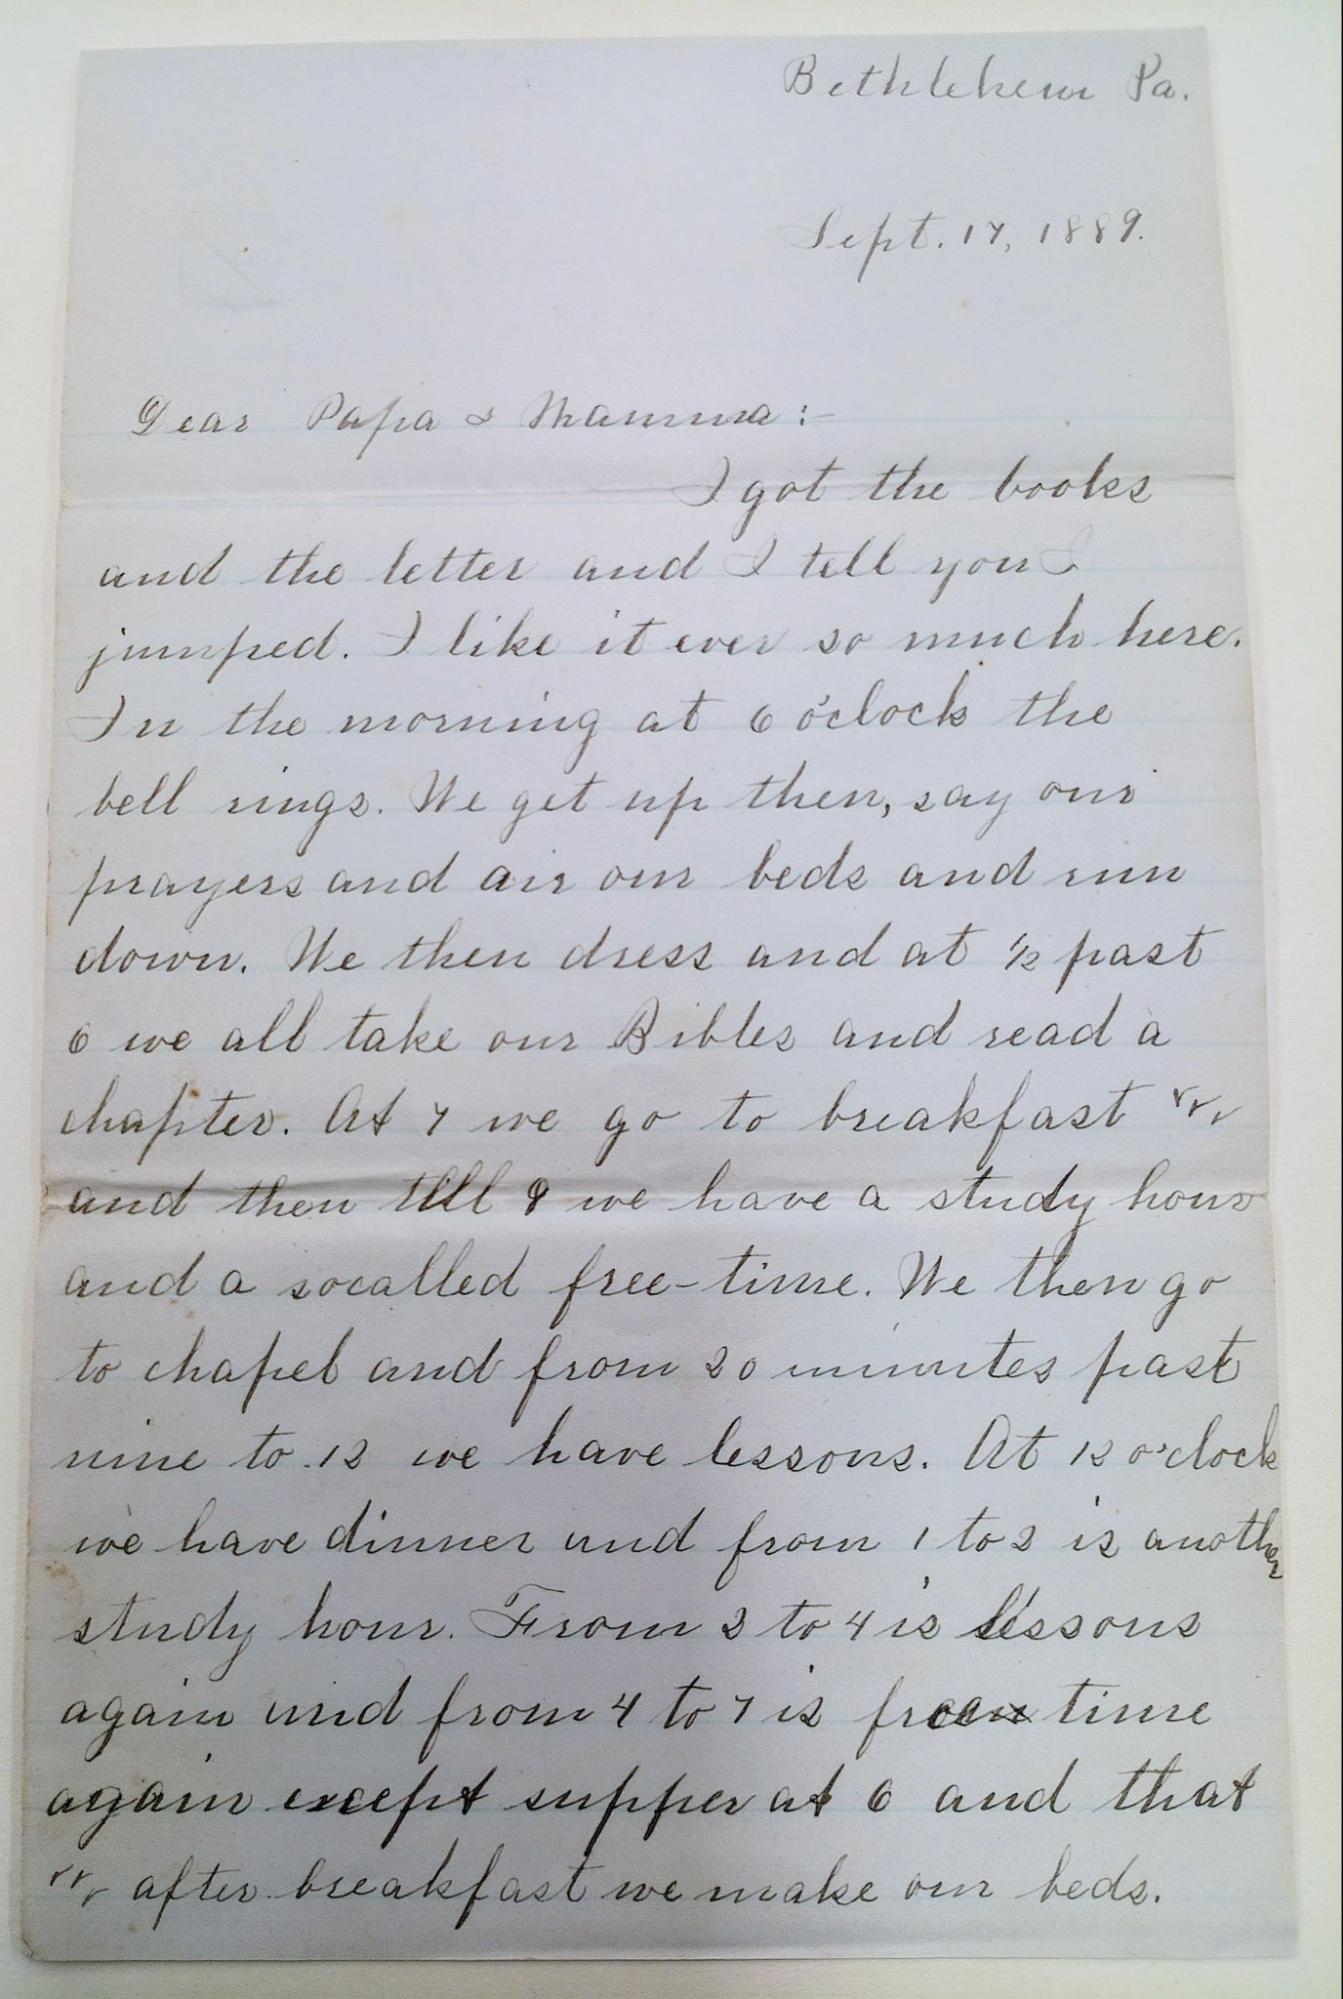 Bethlehem Pa.
Sept. 17, 1889.
Dear Papa & Mamma :-
I got the books
and the letter and I tell you I
jumped. I like it ever so much here.
In the morning at 6 o'clock the
bell rings. We get up then, say our
prayers and air our beds and run
down. We then dress and at ½ past
6 we all take our Bibles and read a
chapter. At 7 we go to breakfast
and then till 8 we have a study hour
and a socalled free-time. We then go
to chapel and from 20 minutes past
nine to 12 we have lessons. At 12 o'clock
we have dinner and from 1 to 2 is another
study hour. From 2 to 4 is lessons
again and from 4 to 7 is free time
again except supper at 6 and that
after breakfast we make our beds.